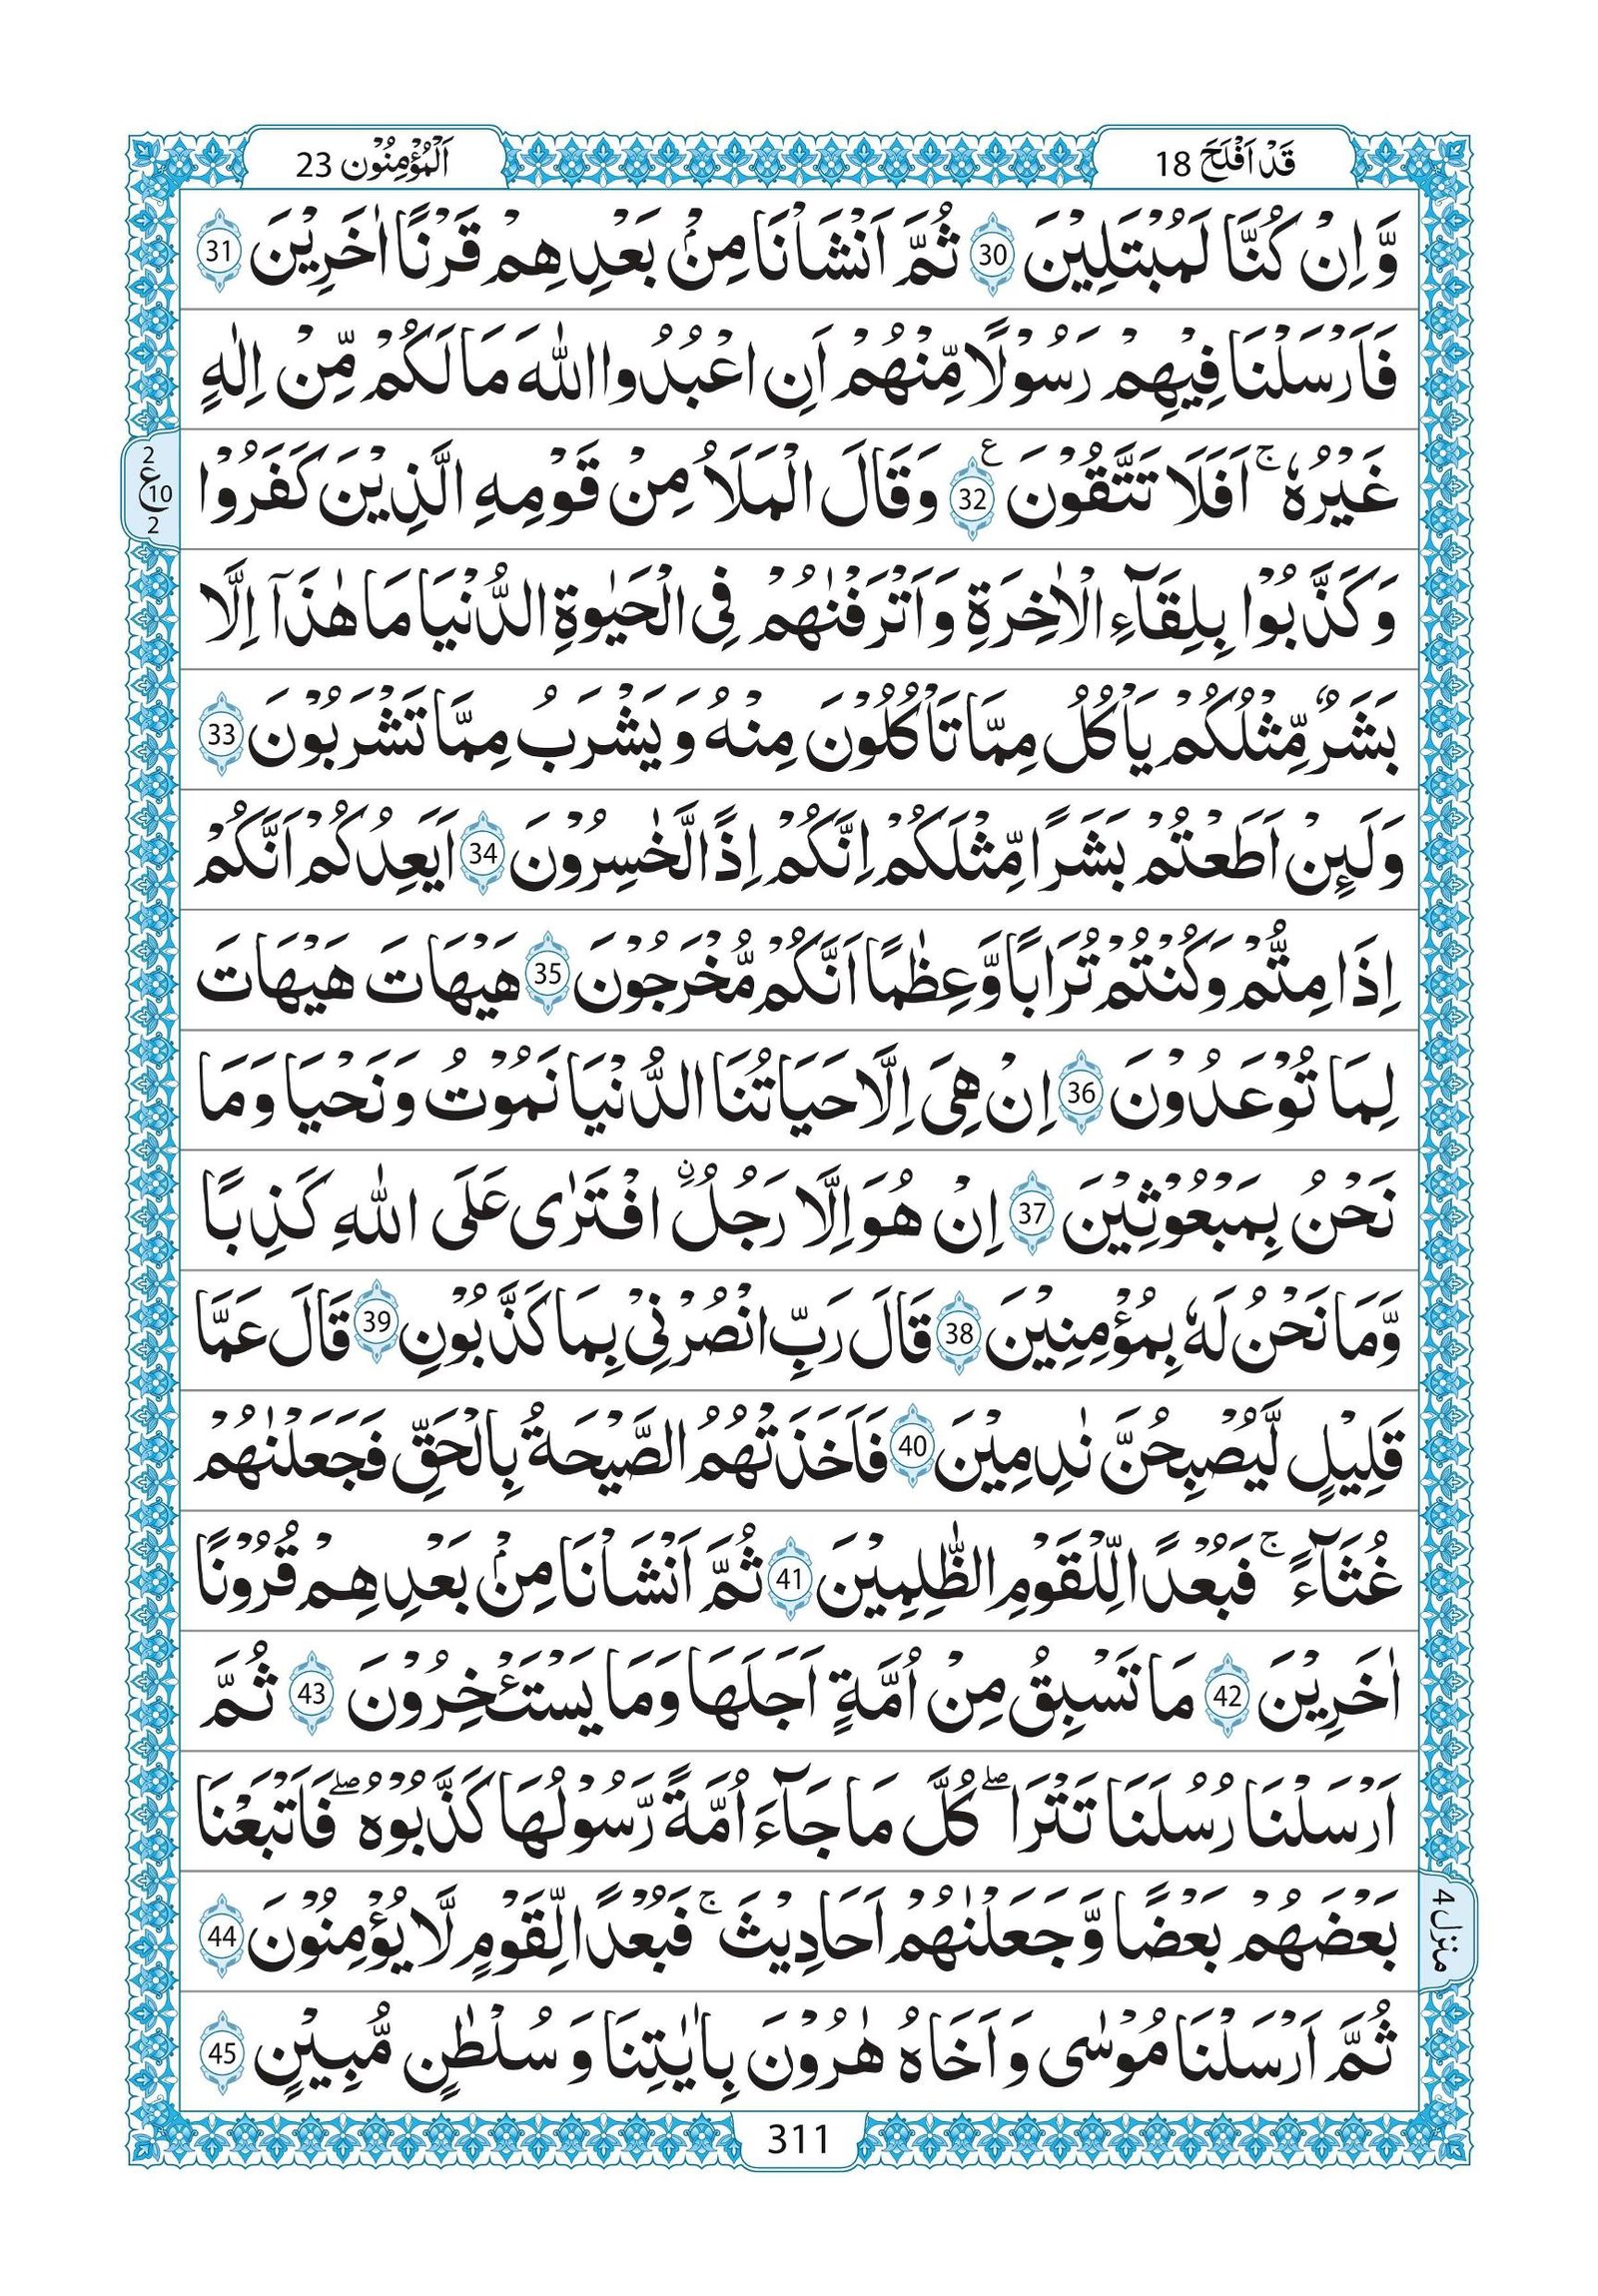 قَدْ اَفْلَحَ 18
اَلْمُؤْمِنُوْن 23
وَّ اِنْ كُنَّا لَمُبْتَلِيْنَ 30 ثُمَّ اَنْشَاْنَا مِنْۢ بَعْدِهِمْ قَرْنًا اٰخَرِيْنَ 31
فَاَرْسَلْنَا فِيْهِمْ رَسُوْلًا مِّنْهُمْ اَنِ اعْبُدُوا اللّٰهَ مَا لَكُمْ مِّنْ اِلٰهٍ
غَيْرُهٗ ۚ اَفَلَا تَتَّقُوْنَ 32 ع وَ قَالَ الْمَلَاُ مِنْ قَوْمِهِ الَّذِيْنَ كَفَرُوْا
2 ع 10 2
وَ كَذَّبُوْا بِلِقَآءِ الْاٰخِرَةِ وَ اَتْرَفْنٰهُمْ فِي الْحَيٰوةِ الدُّنْيَا مَا هٰذَاۤ اِلَّا
بَشَرٌ مِّثْلُكُمْ يَاْكُلُ مِمَّا تَاْكُلُوْنَ مِنْهُ وَ يَشْرَبُ مِمَّا تَشْرَبُوْنَ 33
وَلَىِٕنْ اَطَعْتُمْ بَشَرًا مِّثْلَكُمْ اِنَّكُمْ اِذًا لَّخٰسِرُوْنَ 34 اَيَعِدُكُمْ اَنَّكُمْ
اِذَا مِتُّمْ وَ كُنْتُمْ تُرَابًا وَّ عِظٰمًا اَنَّكُمْ مُّخْرَجُوْنَ 35 هَيْهَاتَ هَيْهَاتَ
لِمَا تُوْعَدُوْنَ 36 اِنْ هِيَ اِلَّا حَيَاتُنَا الدُّنْيَا نَمُوْتُ وَ نَحْيَا وَ مَا
نَحْنُ بِمَبْعُوْثِيْنَ 37 اِنْ هُوَ اِلَّا رَجُلُ ۨافْتَرٰى عَلَى اللّٰهِ كَذِبًا
وَّ مَا نَحْنُ لَهٗ بِمُؤْمِنِيْنَ 38 قَالَ رَبِّ انْصُرْنِيْ بِمَا كَذَّبُوْنِ 39 قَالَ عَمَّا
قَلِيْلٍ لَّيُصْبِحُنَّ نٰدِمِيْنَ 40 فَاَخَذَتْهُمُ الصَّيْحَةُ بِالْحَقِّ فَجَعَلْنٰهُمْ
غُثَآءً ۚ فَبُعْدًا لِّلْقَوْمِ الظّٰلِمِيْنَ 41 ثُمَّ اَنْشَاْنَا مِنْۢ بَعْدِهِمْ قُرُوْنًا
اٰخَرِيْنَ 42 مَا تَسْبِقُ مِنْ اُمَّةٍ اَجَلَهَا وَ مَا يَسْتَـْٔخِرُوْنَ 43 ثُمَّ
اَرْسَلْنَا رُسُلَنَا تَتْرَا ؕ كُلَّ مَا جَآءَ اُمَّةً رَّسُوْلُهَا كَذَّبُوْهُ فَاَتْبَعْنَا
بَعْضَهُمْ بَعْضًا وَّ جَعَلْنٰهُمْ اَحَادِيْثَ ۚ فَبُعْدًا لِّقَوْمٍ لَّا يُؤْمِنُوْنَ 44
منزل 4
ثُمَّ اَرْسَلْنَا مُوْسٰى وَ اَخَاهُ هٰرُوْنَ بِاٰيٰتِنَا وَ سُلْطٰنٍ مُّبِيْنٍ 45
311